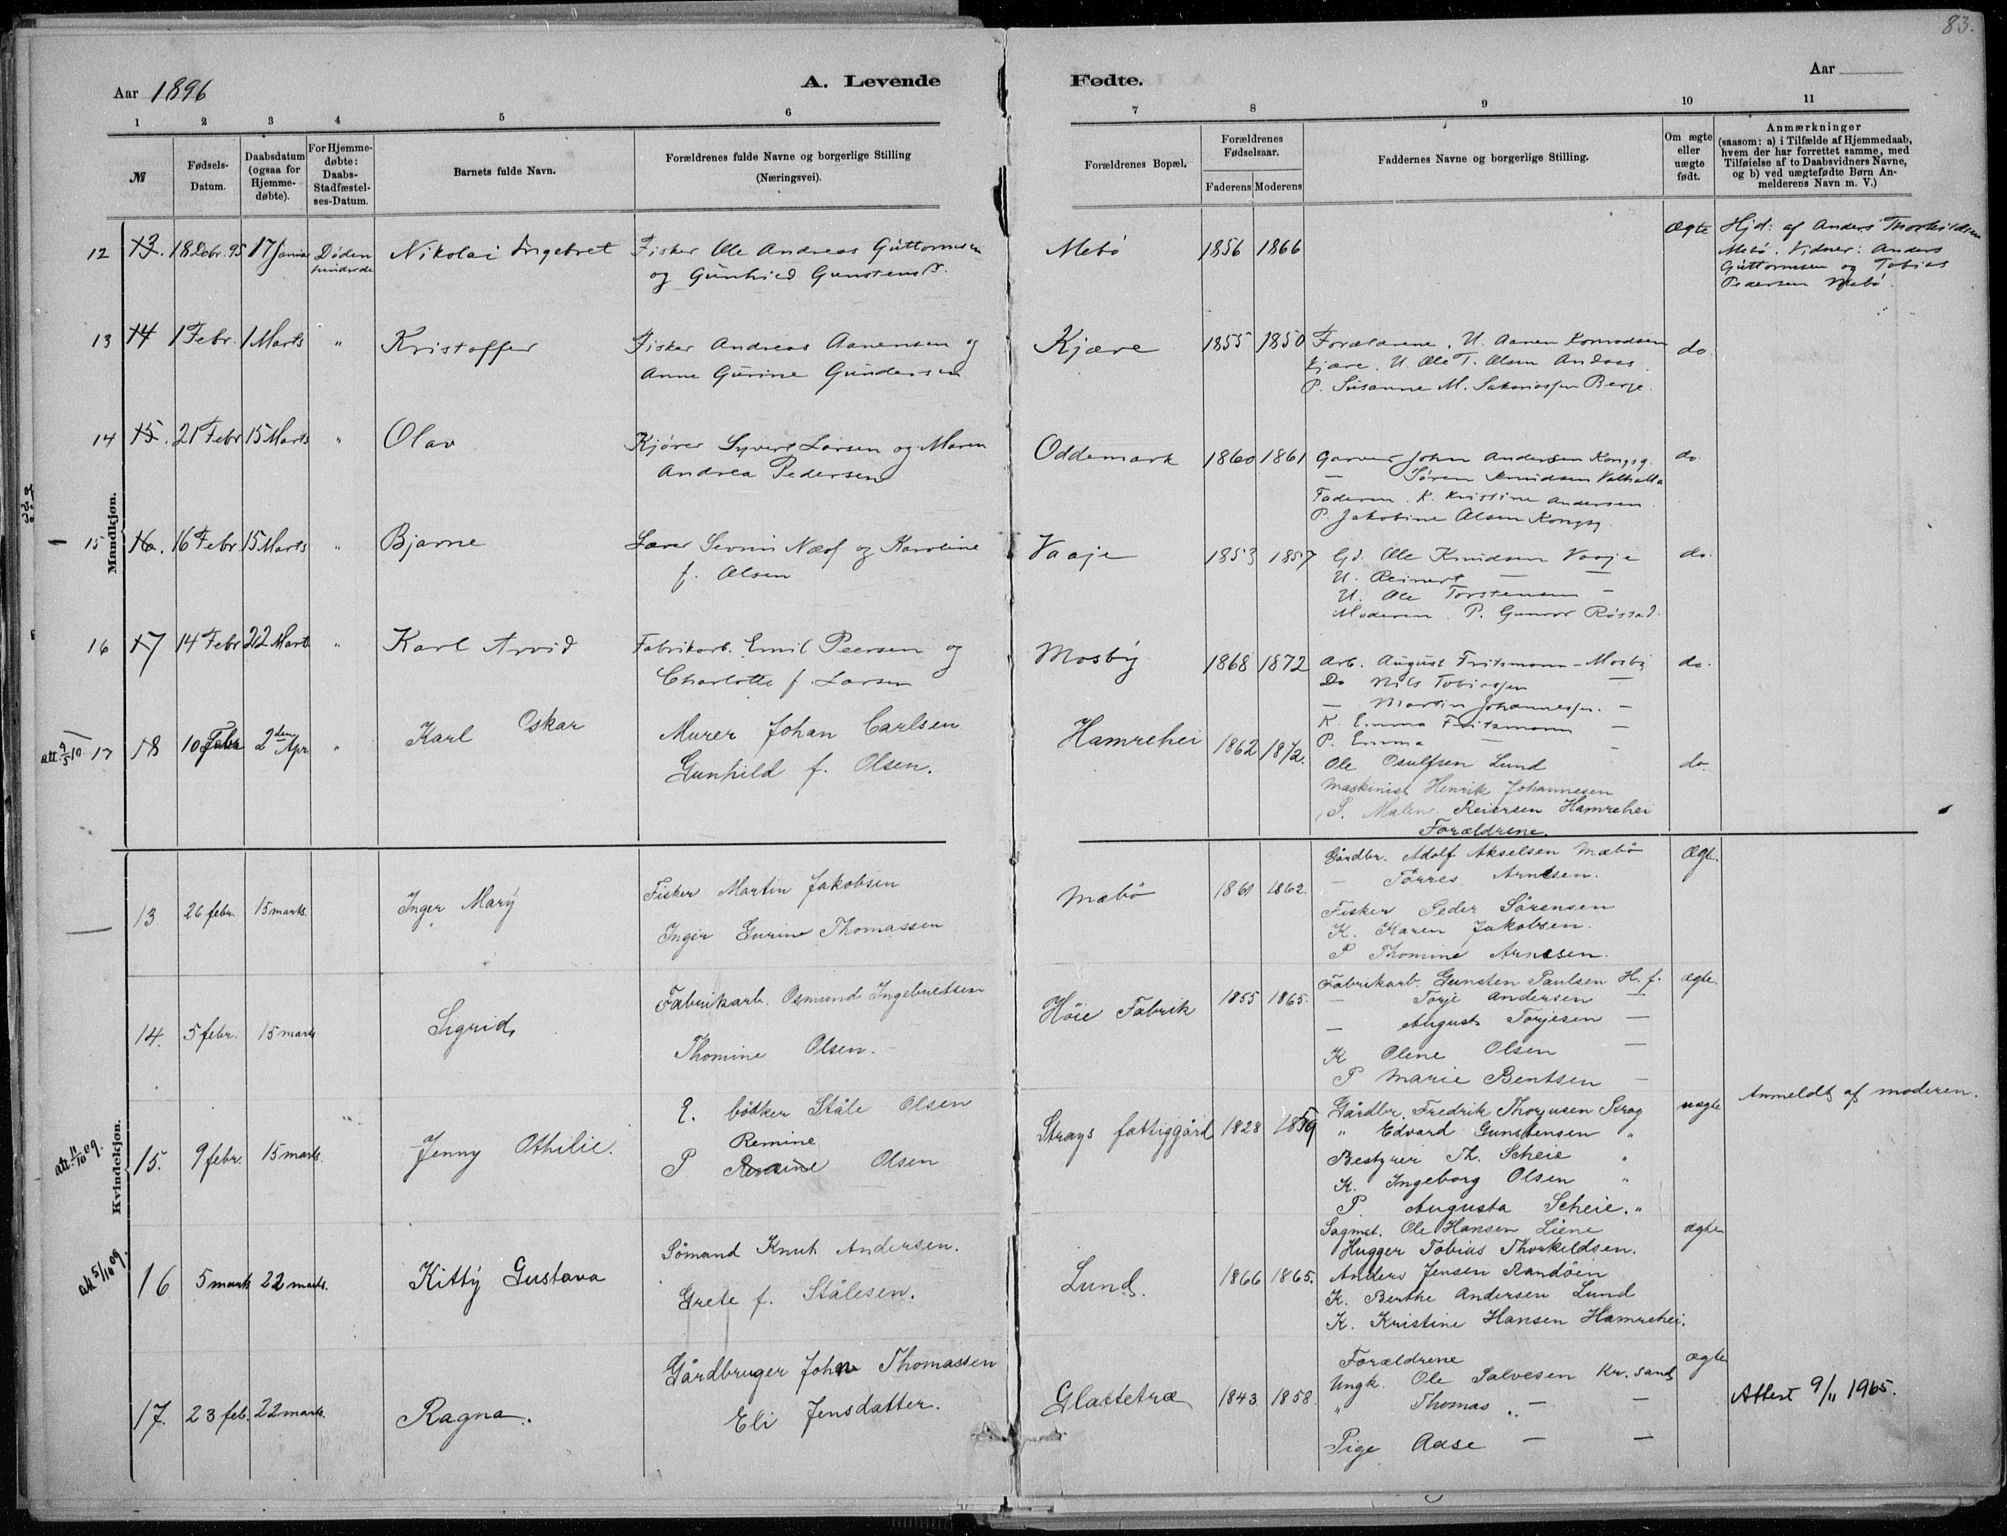 83.
Aar 1896
A. Levende
Fødte.
Aar
1 2 3 4 5 6 7 8 9 10 11
№
Fødsels-
Datum.
Daabsdatum
(ogsaa for
Hjemme-
døbte).
For Hjemme-
døbte:
Daabs-
Stadfæstel-
ses-Datum.
Barnets fulde Navn.
Forældrenes fulde Navne og borgerlige Stilling
(Næringsvei).
Forældrenes Bopæl.
Forældrenes
Fødselsaar.
Faderens Moderens
Faddernes Navne og borgerlige Stilling.
Om ægte
eller
uægte
født.
Anmærkninger
(saasom: a) i Tilfælde af Hjemmedaab,
hvem der har forrettet samme, med
Tilføielse af to Daabsvidners Navne,
og b) ved uægtefødte Børn An-
melderens Navn m. V.)
Mandkjøn.
12 13. 18 Debr. 95 17 Januar Døden
Nikolai Ingebret
Fisker Ole Andreas Guttormsen
og Gunhild Gunstensd.
Mebø 1856 1866
Ægte
Hjd: af Anders Thorkildsen
Mebø. Vidner: Anders
Guttormsen og Tobias
Pedersen Mebø.
13 14 1 Febr. 1 Marts "
Kristoffer
Fisker Andreas Aanensen og
Anne Gurine Gundersen
Kjære 1855 1850
Forældrene. U. Aanen Tormodsen
Kjære. U. Ole T. Olsen Andaas.
P. Susanne M. Sakariassen Berge.
do.
14 15. 21 Febr 15 Marts "
Olav
Kjører Syvert Larsen og Maren
Andrea Pedersen
Oddemark 1860 1861
Garver John Andersen Kongsg.
— Søren Knudsen Valhalla
Faderen. K. Kristine Andersen.
P. Jakobine Olsen Kongsg.
do.
15 16. 16 Febr 15 Marts "
Bjarne
Lærer Sevrin Næof og Karoline
f. Olsen
Vaaje 1853 1857
Gd. Ole Knudsen Vaaje
U. Reinert — —
U. Ole Torstensen —
Moderen. P. Gunvor Røstad.
do.
16 17 14 Febr 22 Mart "
Karl Arvid
Fabrikarb. Emil Peersen og
Charlotte f. Larsen
Mosby 1868 1872
Arb. August Fritsmann — Mosby
Do Nils Tobiassen —
— Martin Johannessen. —
K. Emma Fritsmann —
P. Emma — —
do.
att. 9/5 10. 17 18 10 Febr 2den Apr "
Karl Oskar
Murer Johan Carlsen
Gunhild f. Olsen.
Hamrehei 1862 1872.
Ole Osulfsen Lund
Maskinist Henrik Johannesen
P. Malene Reiersen Hamrehei
Forældrene.
do.
Kvindekjøn.
13 26 febr. 15 marts.
Inger Mary
Fisker Martin Jakobsen
Inger Gurine Thomassen
Mæbø 1861 1862.
Gårdbr. Adolf Akselsen Mæbø
— Tørres Arnesen.
Fisker Peder Sørensen
K. Karen Jakobsen.
P Thomine Arnesen.
Ægte.
14. 5 febr. 15 marts
Sigrid
Fabrikarb. Osmund Ingebretsen
Thomine Olsen.
Høie Fabrik 1855 1865.
Fabrikarb. Gunsten Paulsen H. f.
— Torje Andersen —
— August Torjesen —
K Olene Olsen —
P Marie Bentsen —
ægte.
att. 11/10 09. 15. 9 febr. 15 marts.
Jenny Othilie.
E. bødker Ståle Olsen
Remine
P Olsen
Strays fattiggård 1828 1859
Gårdbr. Fredrik Thorjusen Stray
" Edvard Gunstensen "
Bestyrer Th. Scheie "
K. Ingeborg Olsen "
P. Augusta Scheie. "
uægte
Anmeldt af moderen.
att 5/10 09. 16 5 marts 22 marts.
Kitty Gustava
Sømand Knut Andersen.
Grete f. Stålesen.
Lund. 1866 1865.
Sagmst. Ole Hansen Liene
Hugger Tobias Thorkildsen.
Anders Jensen Randøen
K. Berthe Andersen Lund
K. Kristine Hansen Hamrehei.
ægte
17. 23 feb. 22 marts.
Ragna.
Gårdbruger John Thomassen
Eli Jensdatter.
Glattetræ 1843. 1858.
Forældrene
Ungk. Ole Salvesen Kr. sand
" Thomas " — —
Pige Aase — —
ægte
Attest 9/11 1965.